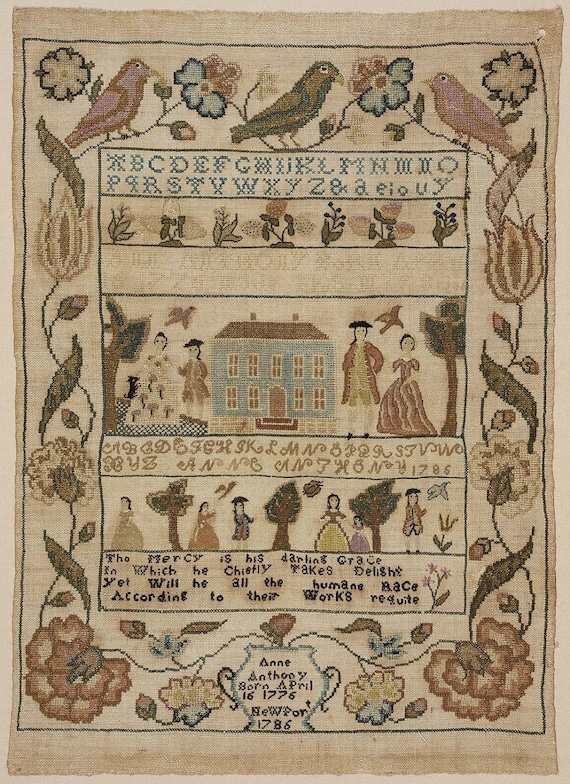 ABCDEFGHIJKLMNO
PQRSTVWXYZ&aeiouy
ABCDEFGHIKLMNOPQRSTVUW
XYZ ANNE ANTHONY 1786
Tho Mercy is his darling Grace
In Which he Chiefly Takes Delight
Yet Will he all the humane Race
According to their Works requite
Anne
Anthony
Born April
16 1776
Newport
1786